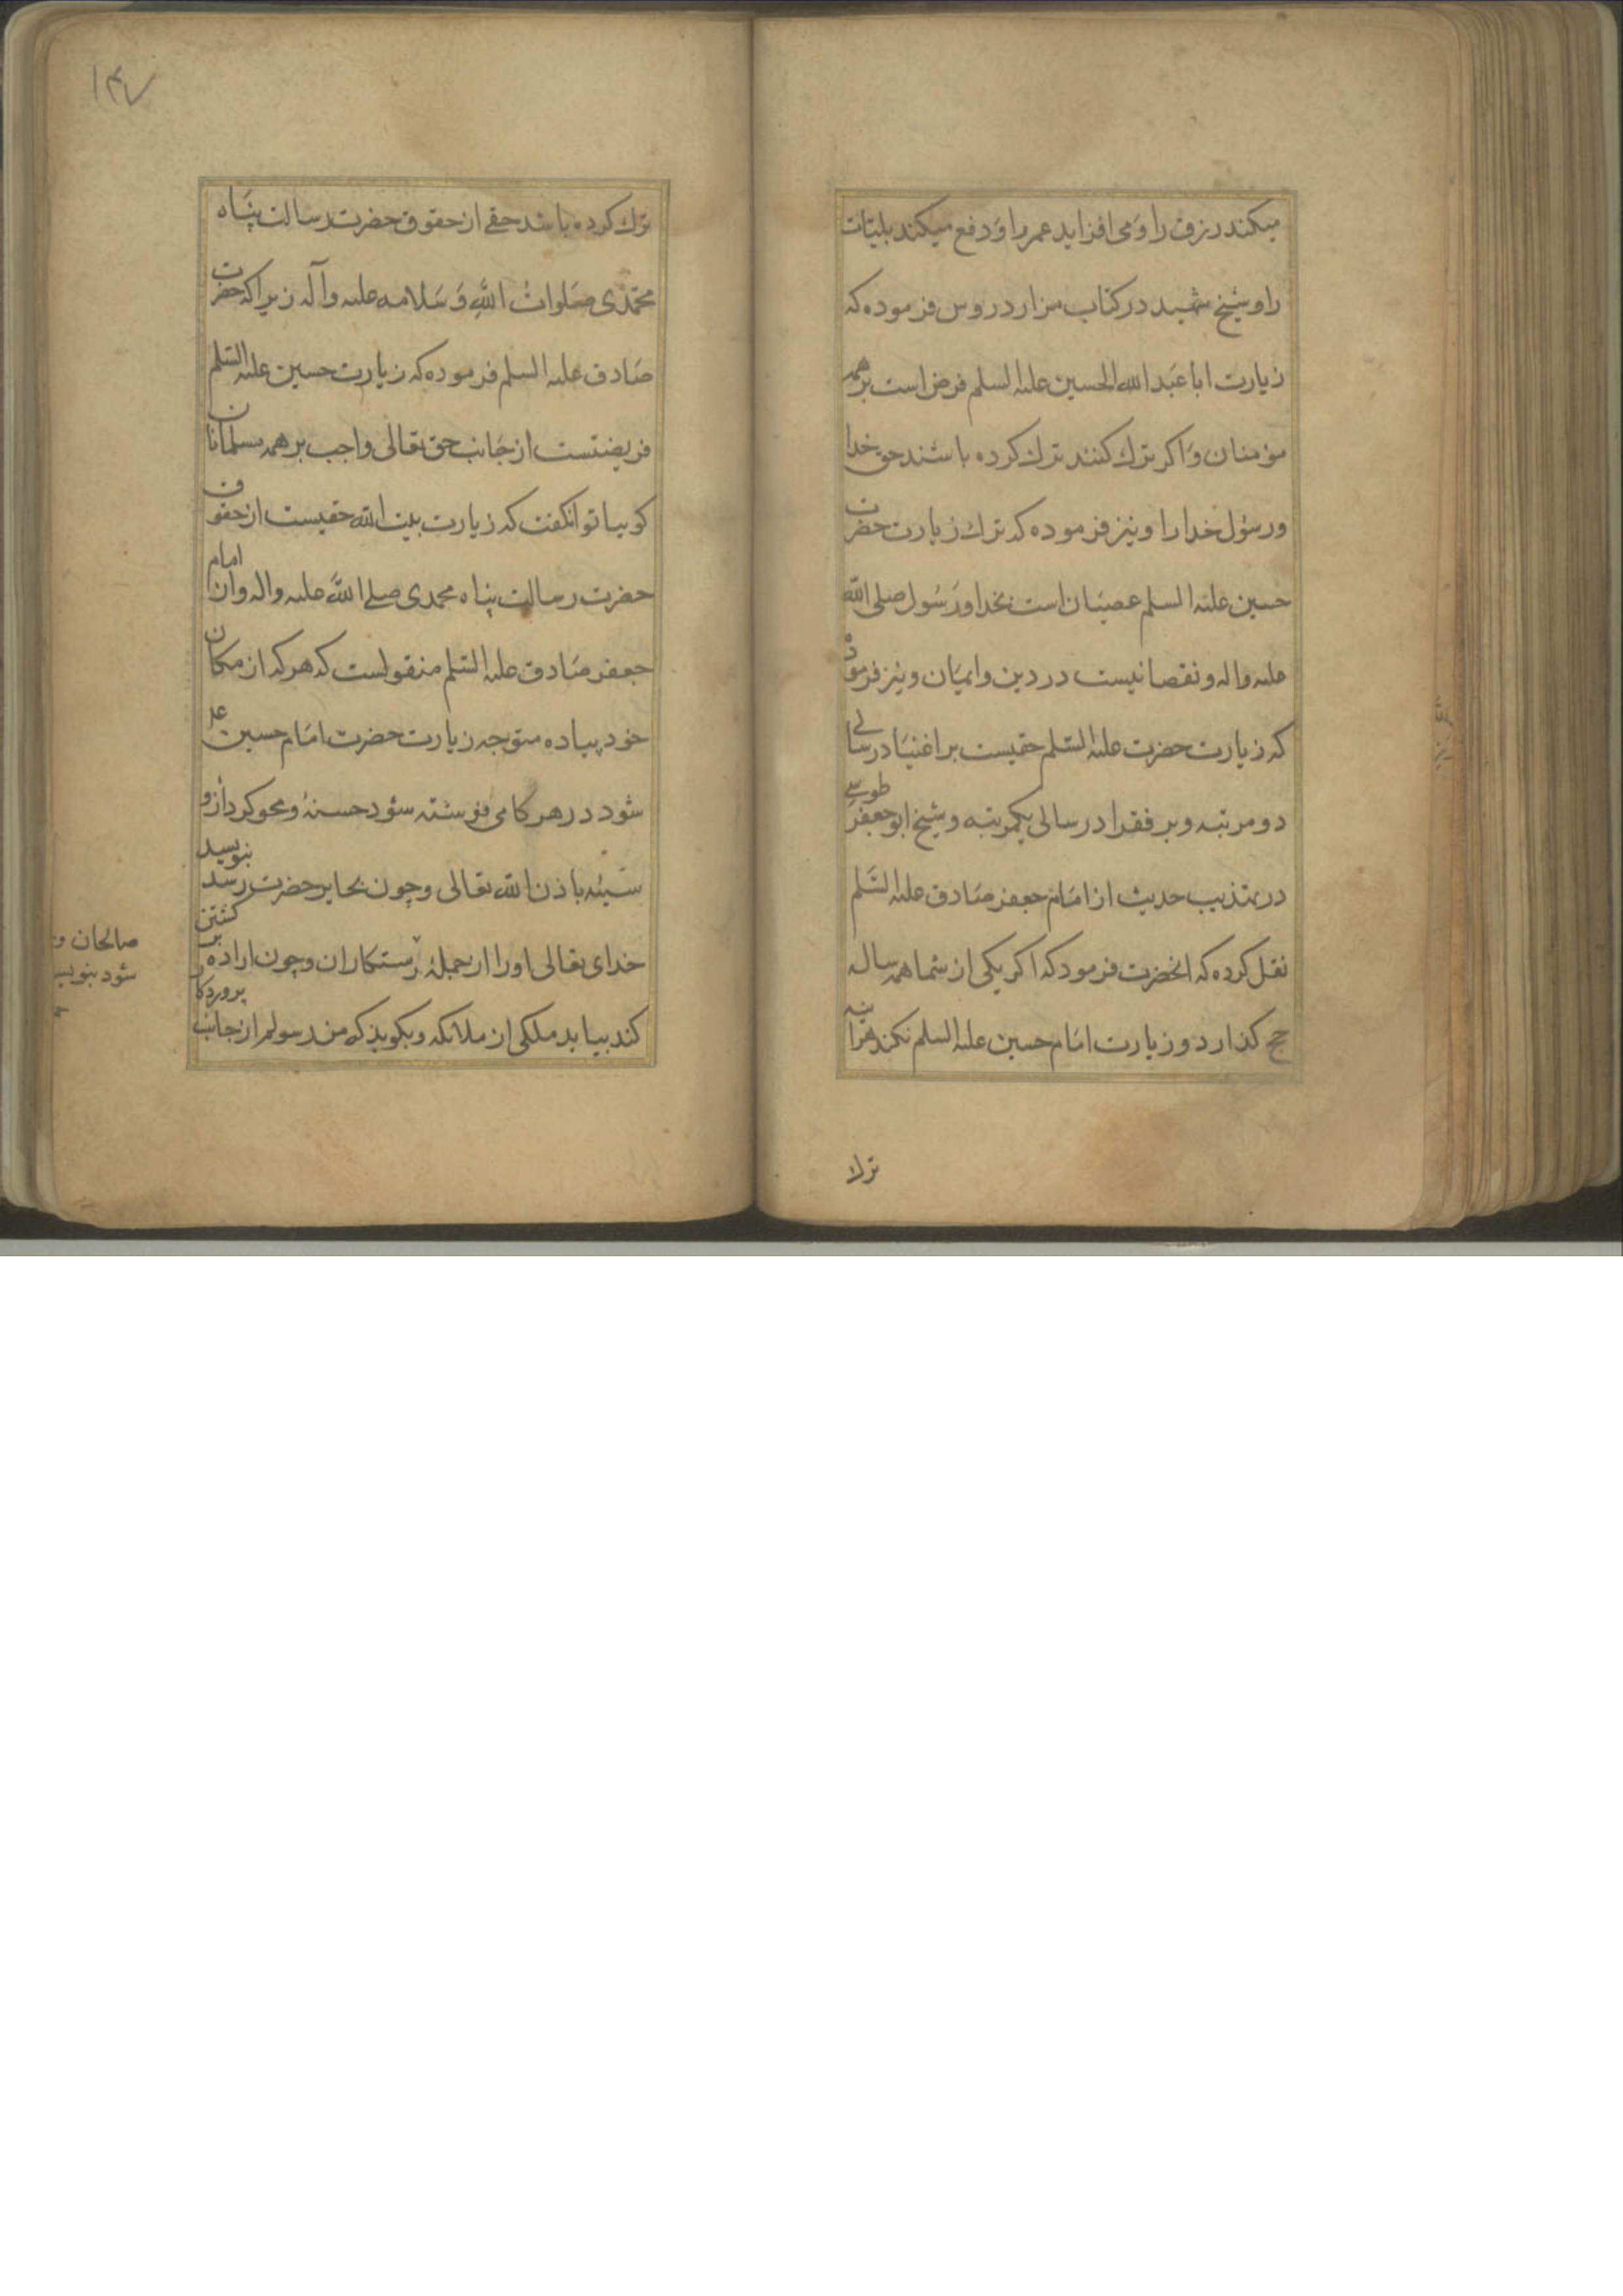 میکند رزق را و می افزاید عمر را و دفع میکند بلیّات
را و شیخ شهید در کتاب مزار دروس فرموده که
زیارت ابا عبد الله الحسین علیه السلم فرض است بر همه
مؤمنان و اکر ترك کنند ترك کرده باشند حق خدا
و رسول خدا را و نیز فرموده که ترك زیارت حضرت
حسین علیه السلم عصیان است بخدا و رسول صلی الله
علیه و اله و نقصانیست در دین و ایمان و نیز فرموده
که زیارت حضرت علیه السّلم حقیست بر اغنیا در سالی
دو مرتبه و بر فقرا در سالی یکمرتبه و شیخ ابو جعفر طوسی
در تهذیب حدیث از امام جعفر صادق علیه السّلم
نقل کرده که انحضرت فرمود که اکر یکی از شما همه سال
حج کذارد و زیارت امام حسین علیه السلم نکند هراینه
ترك
۱۴۷
ترك کرده باشد حقی از حقوق حضرت رسالت پناه
محمّدی صلوات اللّه و سلامه علیه و آله زیرا که حضرت
صادق علیه السلم فرموده که زیارت حسین علیه السّلم
فریضتست از جانب حق تعالی واجب بر همه مسلمانان
کوییا توانکفت که زیارت بیت الله حقیست از حقوق
حضرت رسالت پناه محمدی صلی اللّه علیه و اله و از امام
جعفر صادق علیه السّلم منقولست که هر که از مکان
خود پیاده متوجه زیارت حضرت امام حسین ع
شود در هر کامی نوشته شود حسنۀ و محو کردد ازو
سیئه باذن الله تعالی و چون بحایر حضرت رسد بنویسد
خدای تعالی او را از جملۀ رستکاران و چون اراده بر کشتن
کند بیاید ملکی از ملائکه و بکوید که من رسولم از جانب پروردکار
صالحان و
شود بنویسد